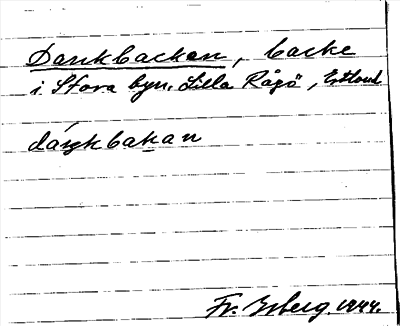 Dankbackan, backe
i Stora byn. Lilla Rågö, Estland
dáŋkbakan
Fr. 1944.